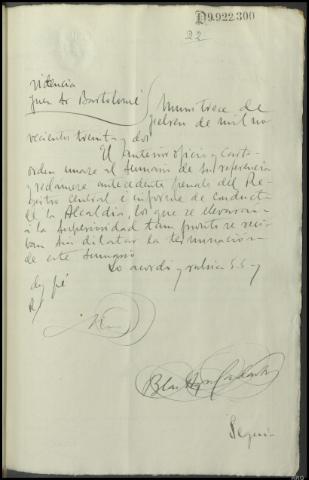 D9.922.300
22
Providencia
Juez Sr Bartolomé
trece de
febrero de mil no
vecientos treinta y dos
El anterior oficio y carta
orden unase al Sumario de su referencia
y reclamese antecedente penales del Re-
gistro Central e informe de conducta
de la Alcaldia, los que se elevaran
a la Superioridad tan pronto se reci-
ban sin dilatar la terminación
de este Sumario
Lo acordó y rubrica S.S. y
doy fé
Blas
Segui-